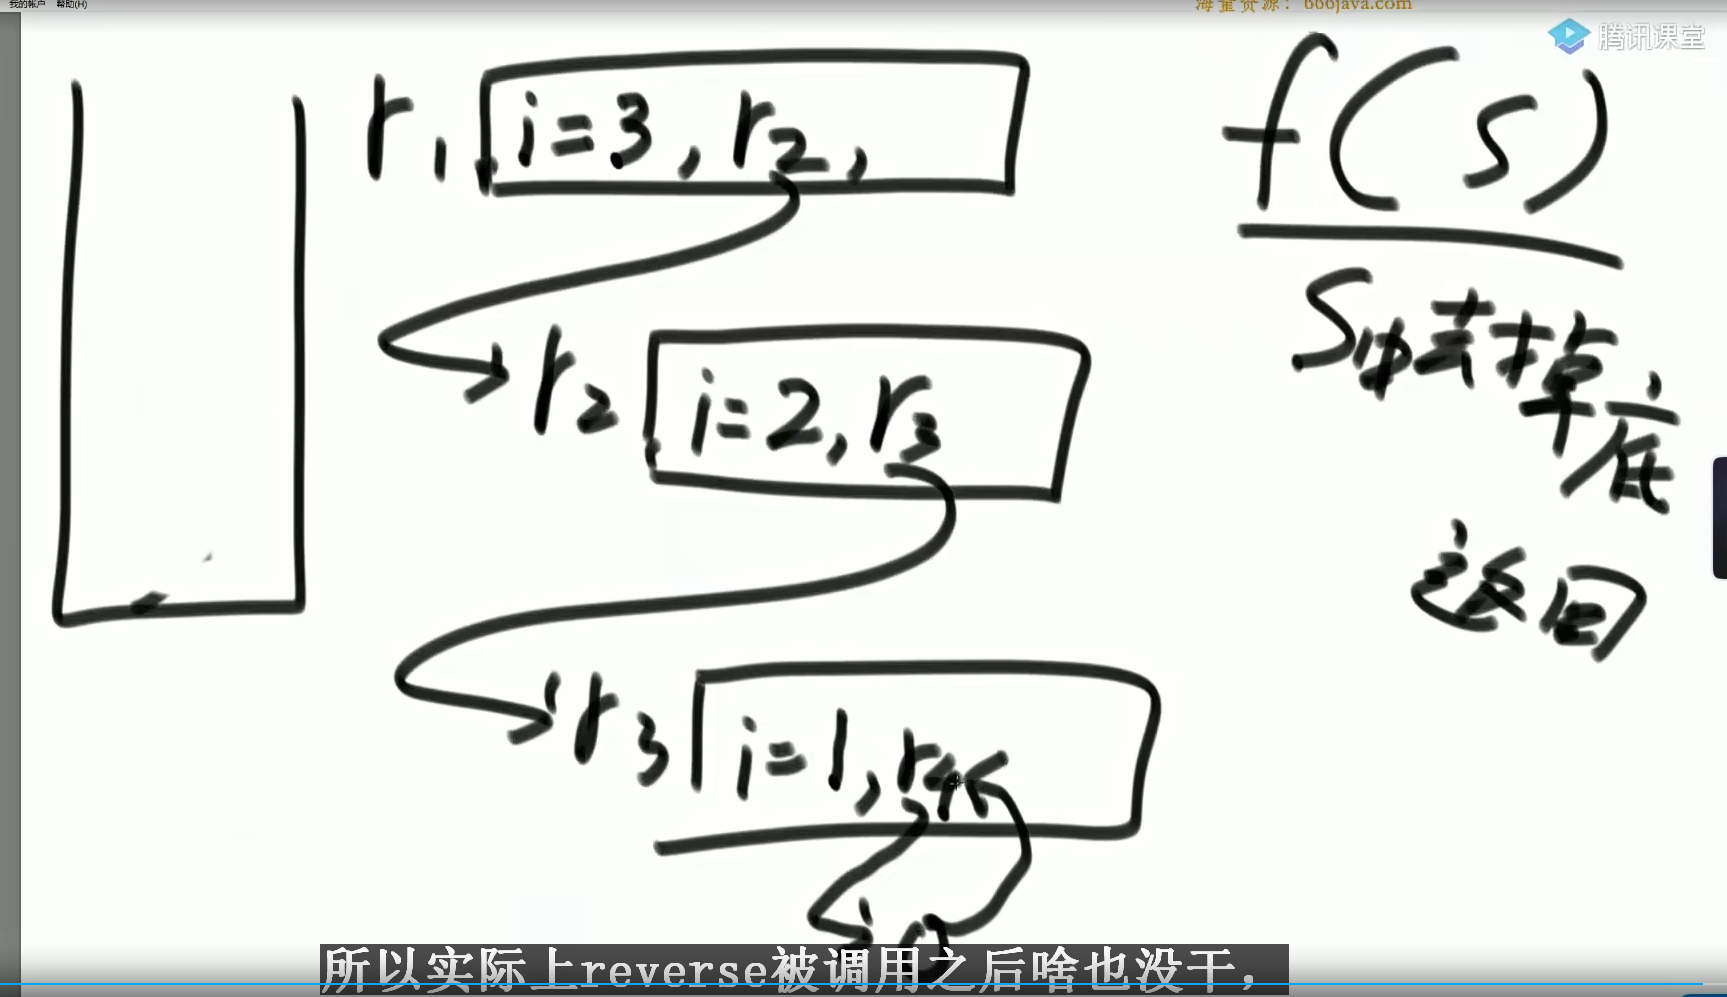 我的帐户 帮助(H)
海量资源：666java.com
腾讯课堂
r1 i=3, r2,
f(S)
r2 i=2, r3
S中去掉底
返回
r3 i=1, r4
所以实际上reverse被调用之后啥也没干，